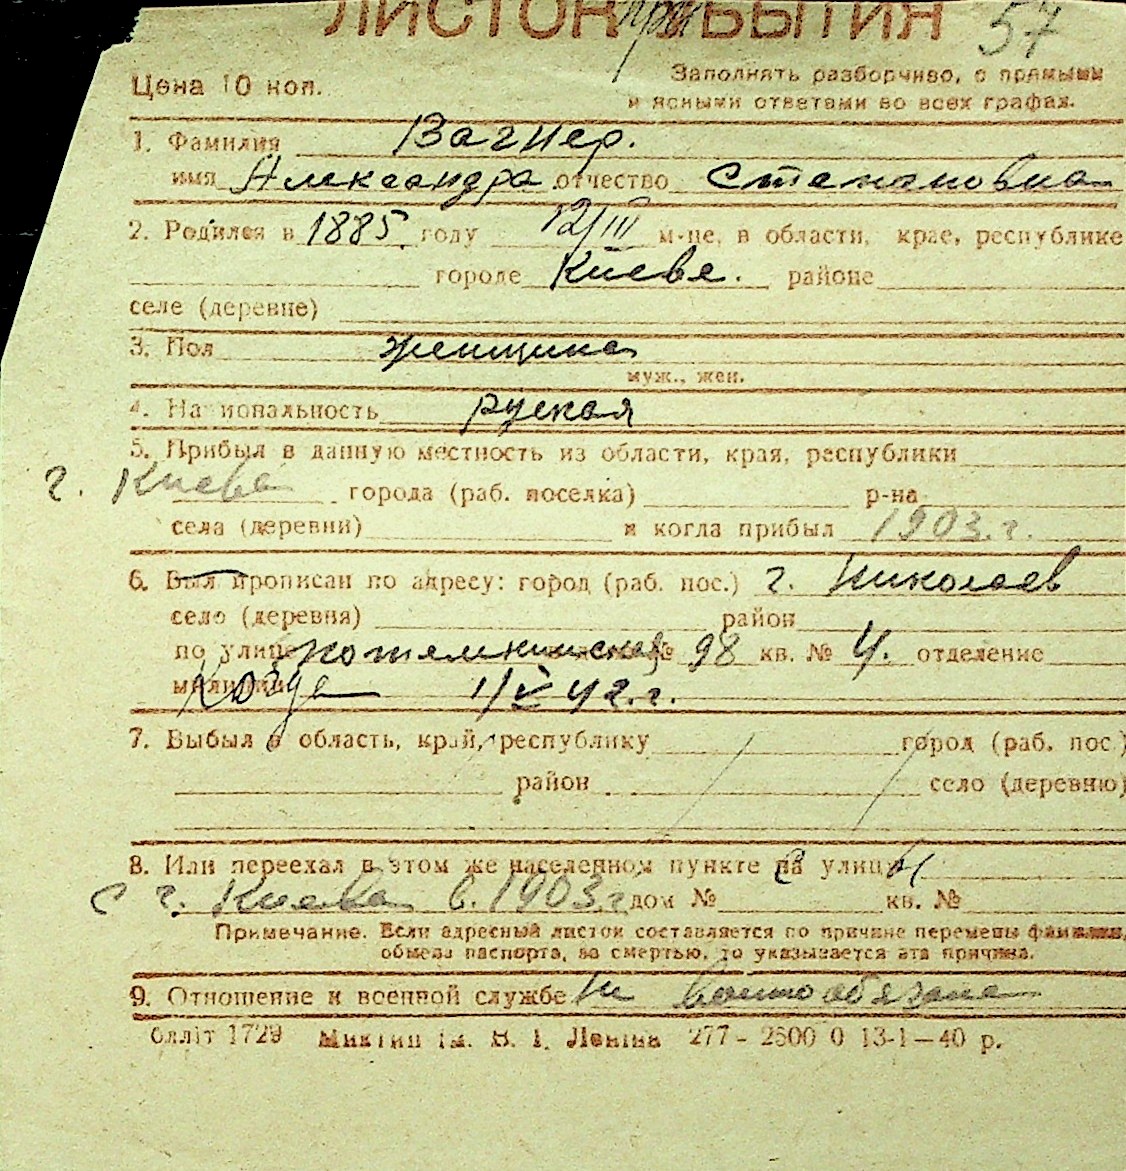 ЛИСТОК при БЫТИЯ 57
Цена 10 коп. Заполнять разборчиво, с прямыми
и ясными ответами во всех графах.
1. Фамилия Вагнер.
имя Александра отчество Степановна
2. Родился в 1885. году 12/III м-це, в области, крае, республике
городе Киеве. районе
селе (деревне)
3. Пол женщина
муж., жен.
4. Национальность руская
5. Прибыл в данную местность из области, края, республики
г. Киева города (раб. поселка) р-на
села (деревни) и когда прибыл 1903. г.
6. Был прописан по адресу: город (раб. пос.) г. Николаев
село (деревня) район
по улице потемкинская № 98 кв. № 4. отделение
милиции Когда 1/V 42 г. г.
7. Выбыл в область, край, республику город (раб. пос.)
район село (деревню)
8. Или переехал в этом же населенном пункте на улицу
с г. Киева в. 1903. г дом № кв. №
Примечание. Если адресный листок составляется по причине перемены фамилии,
обмена паспорта, за смертью, то указывается эта причина.
9. Отношение к военной службе Не военнообязана
блліт 1729 Миктип ім. В. І. Леніна 277 - 2500 0 13-1-40 р.